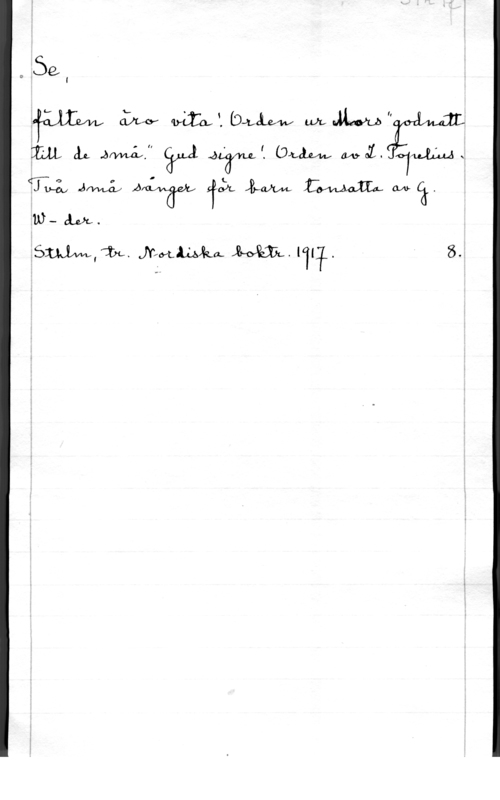 Se,
fälten äro vita! Orden ur Mors "godnatt
till de små." Gud signe! Orden av Z. Topelius.
Två små sånger för barn tonsatta av G.
W-der.
Sthlm, tr. Nordiska boktr. 1917. 8.